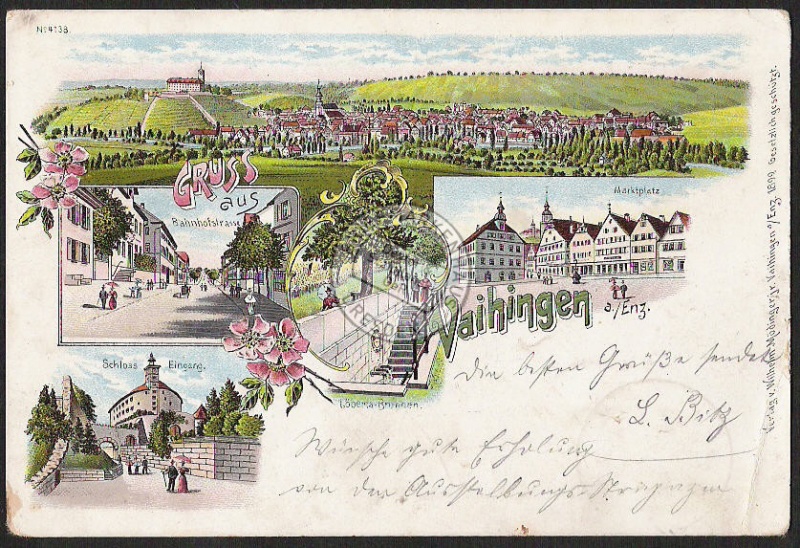 No 4138.
GRUSS
aus
Bahnhofstrasse
Marktplatz
Vaihingen
a./Enz.
Schloss Eingang.
Brunnen.
Die besten Grüße sendet
L. Bitz
Wünsche gute Erholung
von den Ausstellungs-Strapazen
Verlag v. Wilhelm Maidinger jr. Vaihingen a/Enz 1899. Gesetzlich geschützt.